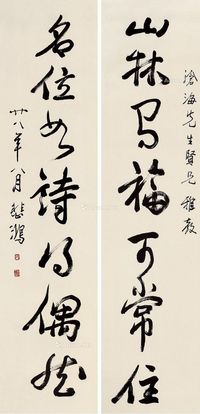 滄海先生賢兄雅教
山林為福可常住
名位如詩得偶然
廿八年八月悲鴻